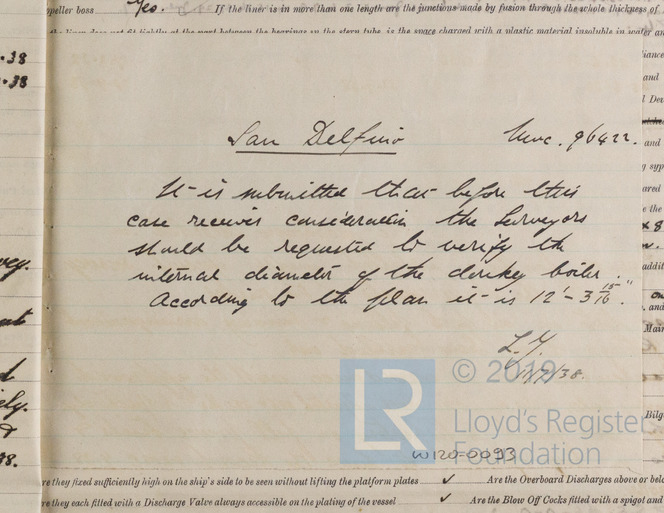 opeller boss Yes. If the liner is in more than one length are the junctions made by fusion through the whole thickness of
the liner does not fit tightly at the part between the bearings in the stern tube, is the space charged with a plastic material insoluble in water an
.38
.38
San Delfino
96422.
It is submitted that before this
case receives consideration the Surveyors
should be requested to verify the
internal diameter of the donkey boiler.
According to the plan it is 12'-3 15/16".
L.Y.
/7/38.
© 2019
LR
Lloyd's Register
Foundation
W120-0093
re they fixed sufficiently high on the ship's side to be seen without lifting the platform plates ✓ Are the Overboard Discharges above or belo
re they each fitted with a Discharge Valve always accessible on the plating of the vessel ✓ Are the Blow Off Cocks fitted with a spigot and